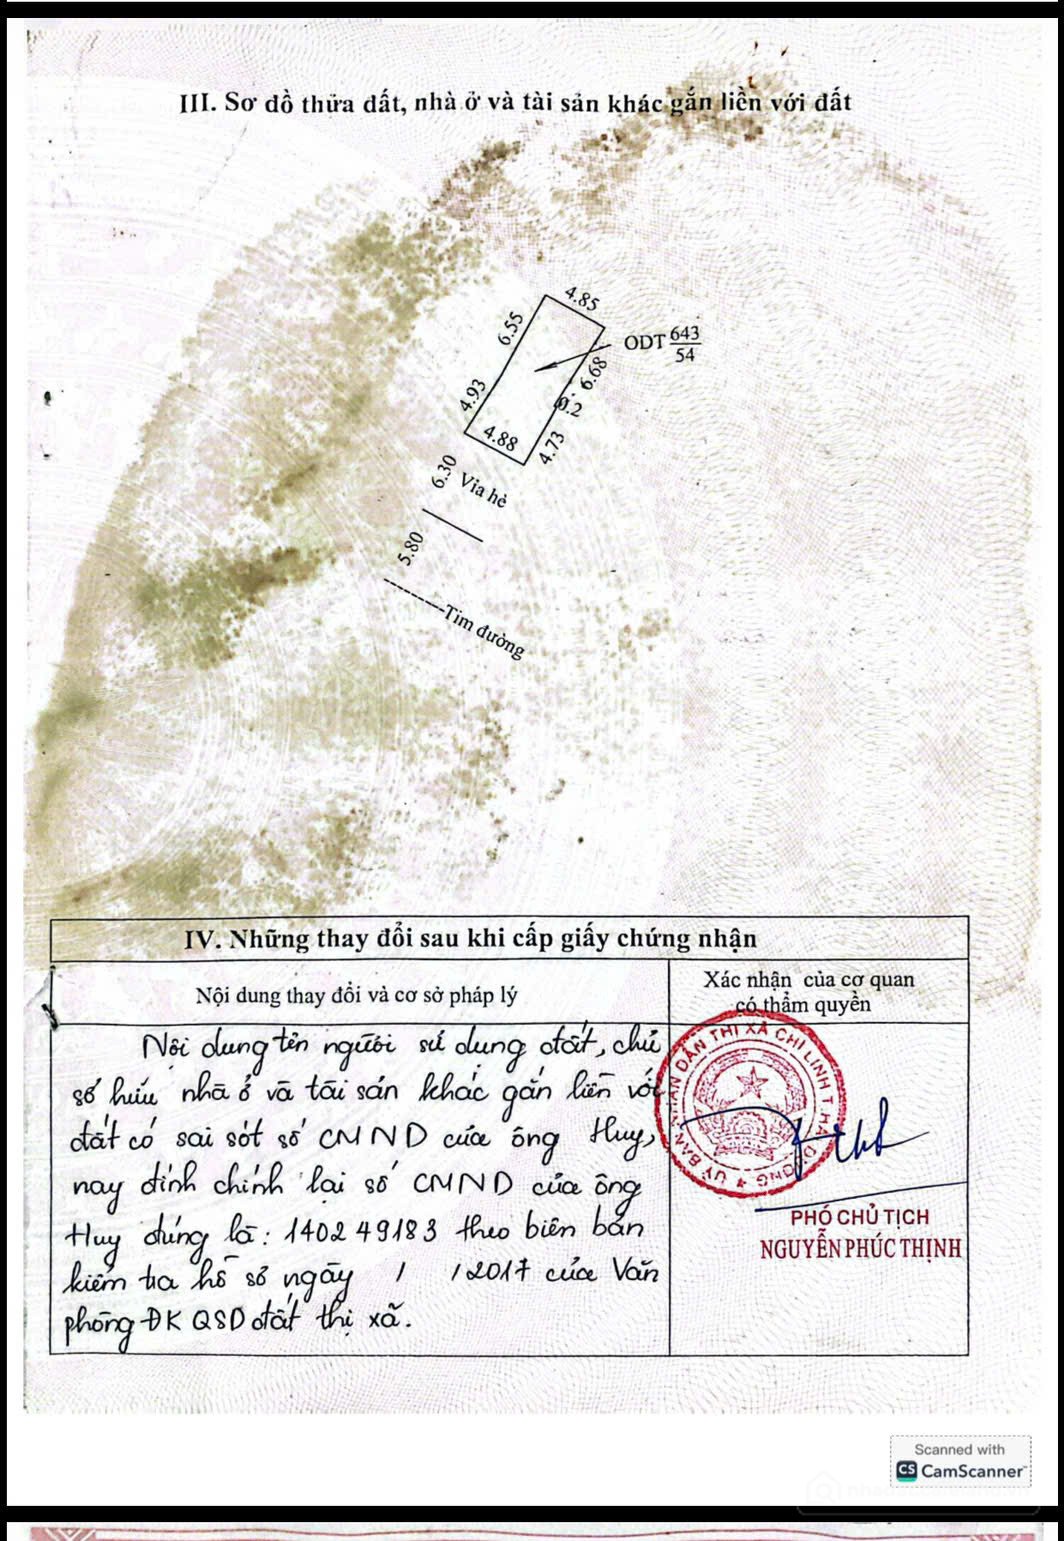 III. Sơ đồ thửa đất, nhà ở và tài sản khác gắn liền với đất
4.85
6.55
ODT 643/54
6.68
4.93
0.2
4.88
4.73
6.30
Vỉa hè
5.80
Tim đường
IV. Những thay đổi sau khi cấp giấy chứng nhận
Nội dung thay đổi và cơ sở pháp lý
Xác nhận của cơ quan
có thẩm quyền
Nội dung tên người sử dụng đất, chủ
sở hữu nhà ở và tài sản khác gắn liền với
đất có sai sót số CMND của ông Huy,
nay đính chính lại số CMND của ông
Huy đúng là: 140249183 theo biên bản
kiểm tra hồ sơ ngày / /2017 của Văn
phòng ĐK QSD đất thị xã.
ỦY BAN NHÂN DÂN THỊ XÃ CHÍ LINH T.HẢI DƯƠNG
PHÓ CHỦ TỊCH
NGUYỄN PHÚC THỊNH
Scanned with
CS CamScanner